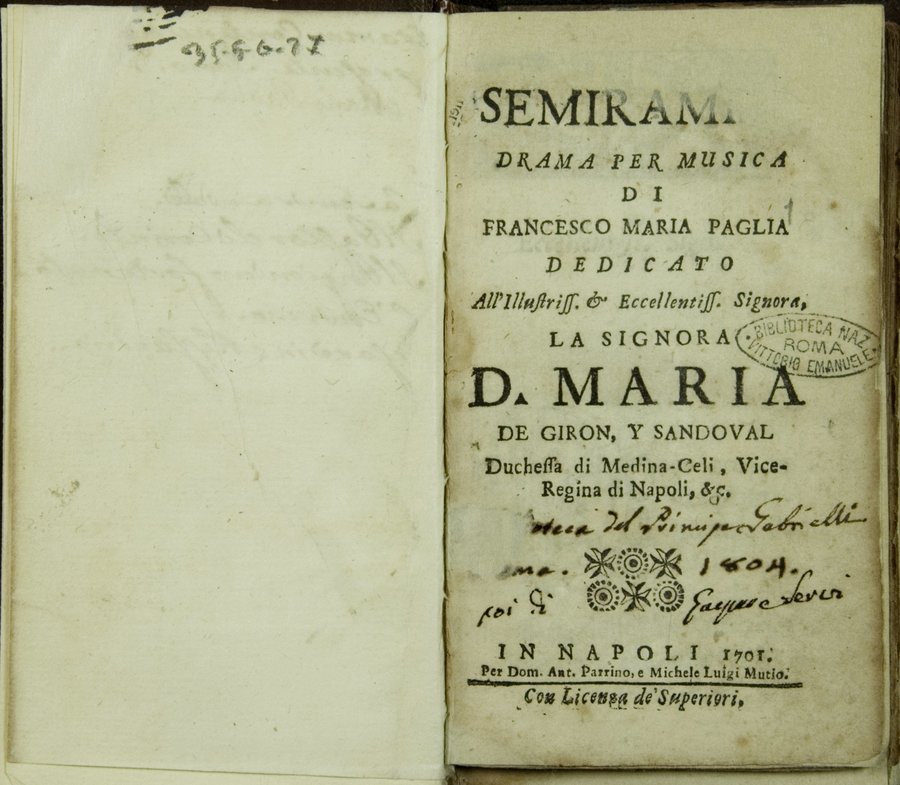 35.5.G.27
SEMIRAMI
DRAMA PER MUSICA
DI
FRANCESCO MARIA PAGLIA
DEDICATO
All'Illuſtriſſ. & Eccellentiſſ. Signora,
LA SIGNORA
BIBLIOTECA NAZ.
ROMA
VITTORIO EMANUELE
D. MARIA
DE GIRON, Y SANDOVAL
Ducheſſa di Medina-Celi, Vice-
Regina di Napoli, &c.
oteca del Principe Gabrielli
ma. 1804.
poi di Gaspare Servi
IN NAPOLI 1701.
Per Dom. Ant. Parrino, e Michele Luigi Mutio.
Con Licenza de' Superiori.